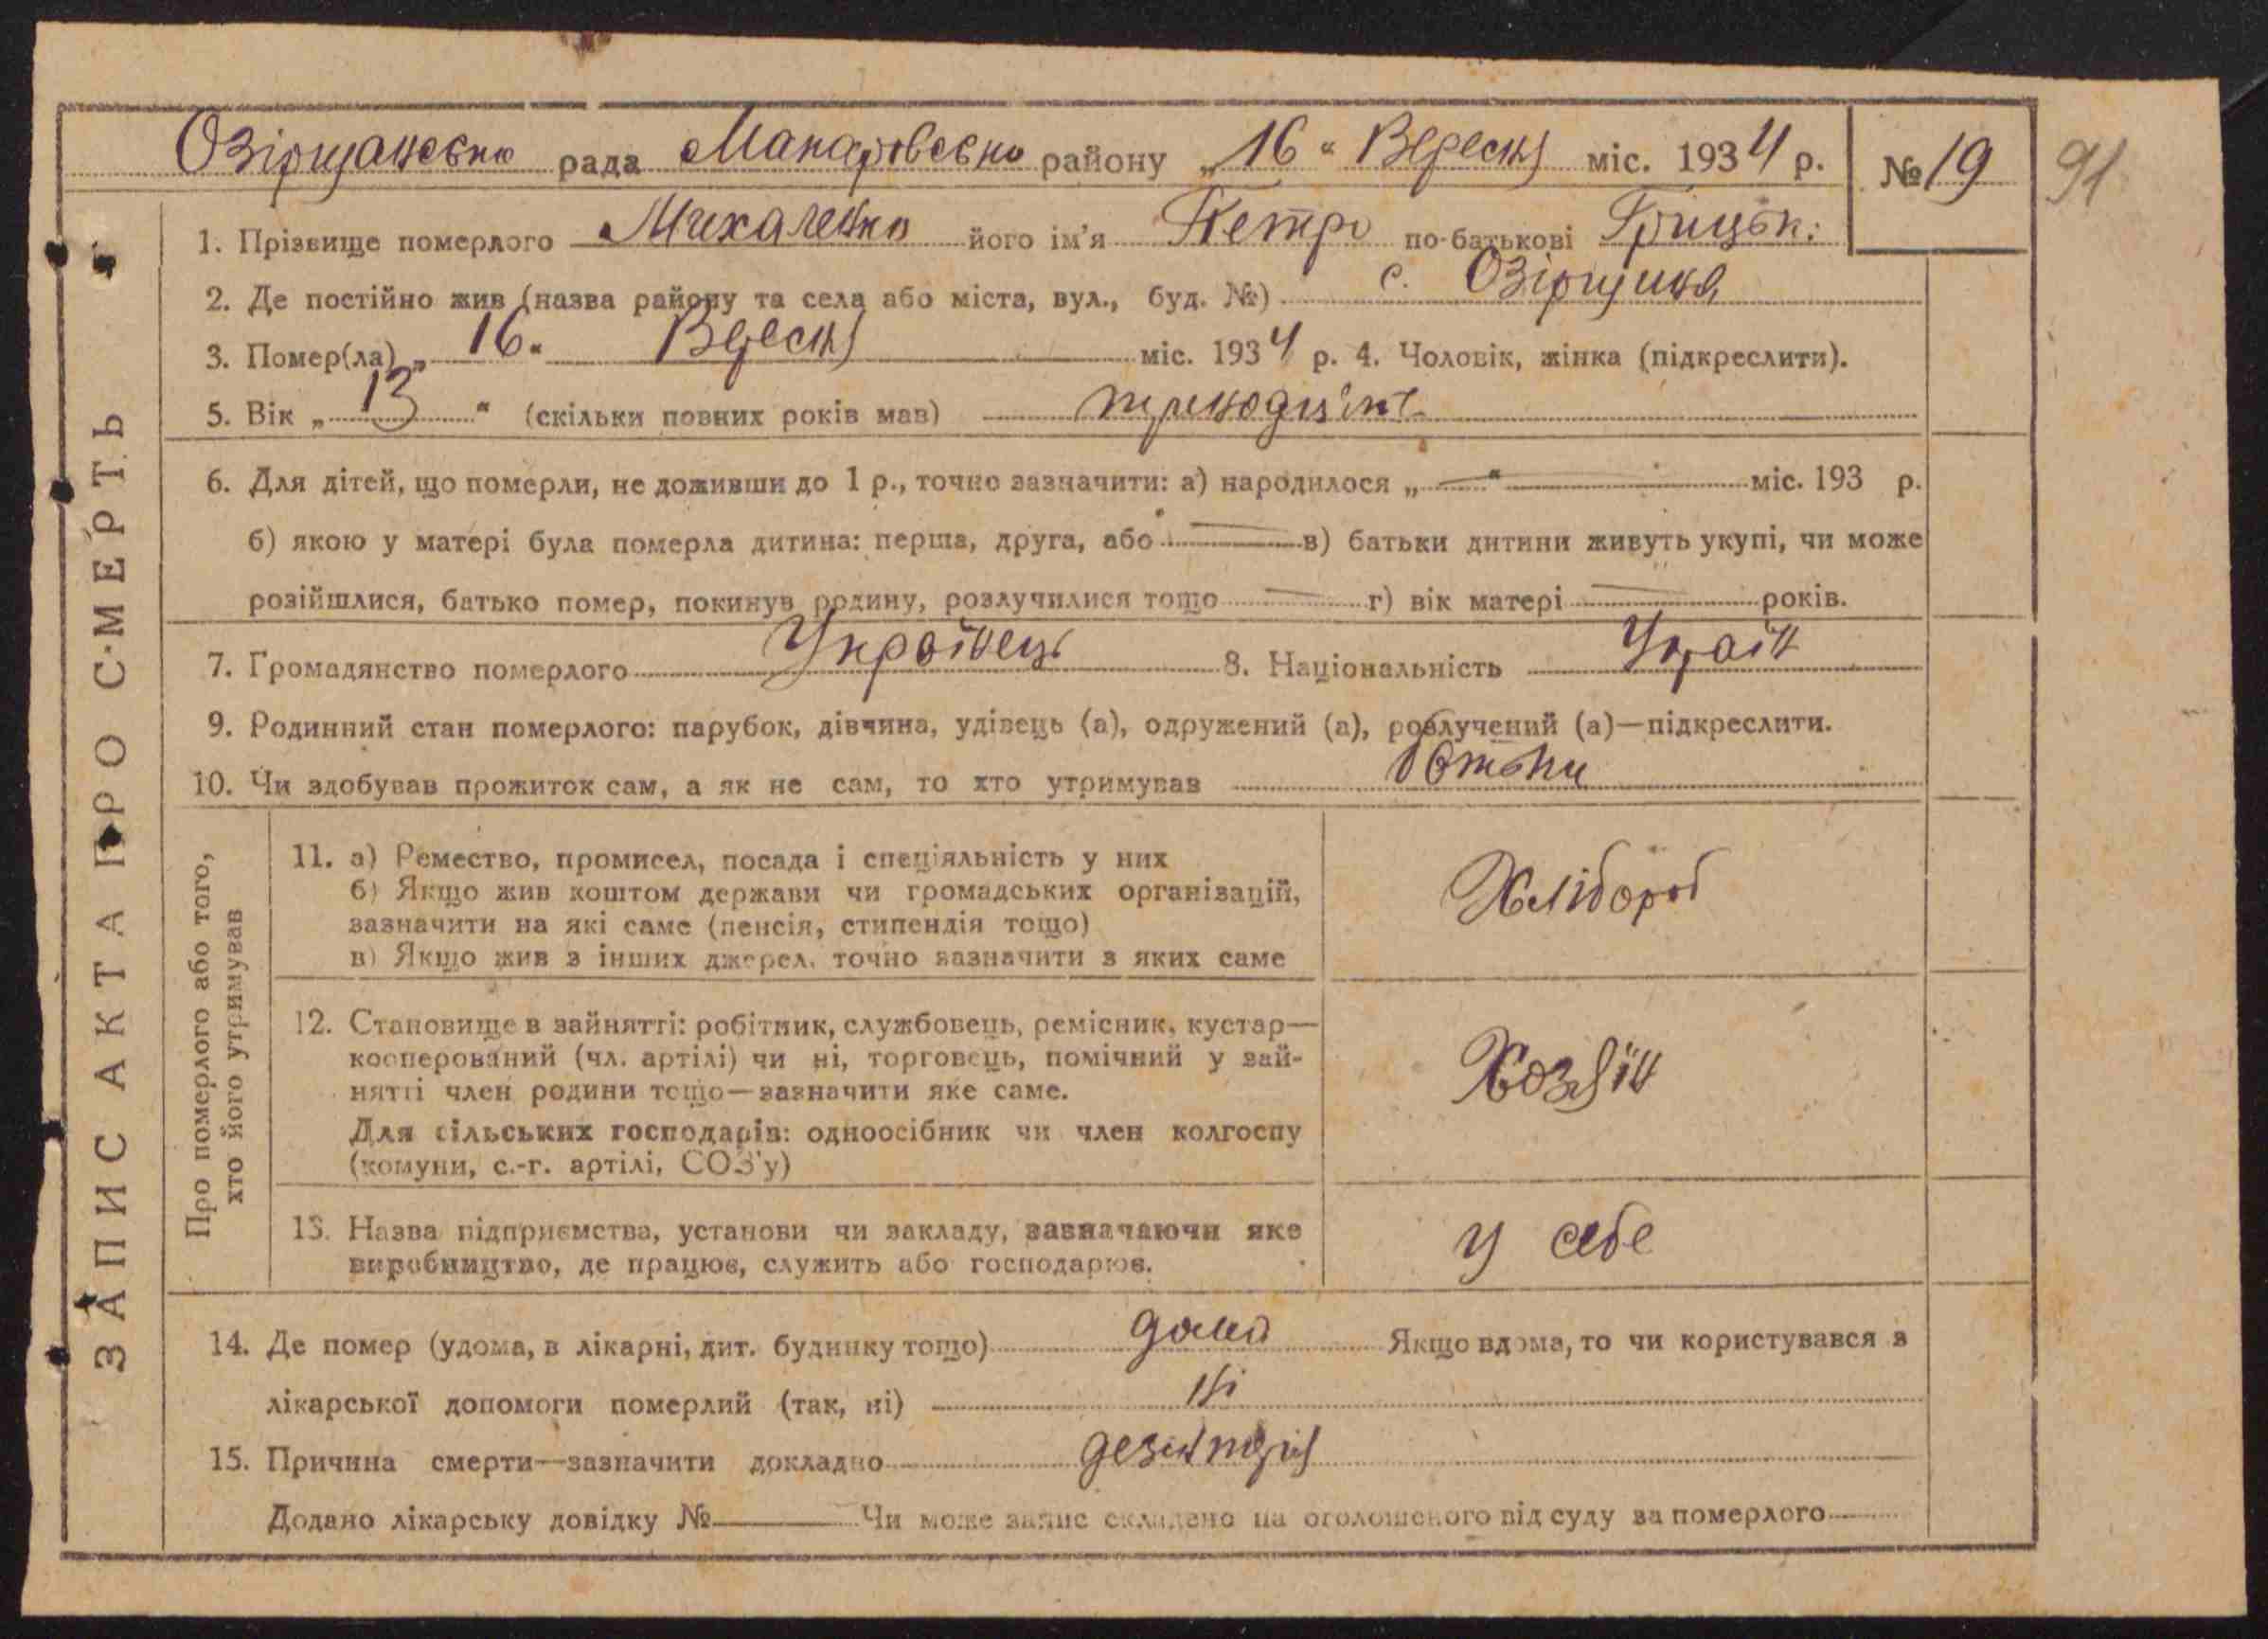 Озірщанська рада Макаровсько району „16“ Вересня міс. 1934 р. № 19 91
1. Прізвище померлого Михаленко його ім'я Петро по-батькові Грицьк:
2. Де постійно жив (назва району та села або міста, вул., буд. №) с. Озірщина
3. Помер(ла) „16“ Вересня міс. 1934 р. 4. Чоловік, жінка (підкреслити).
5. Вік „13“ (скільки повних років мав)
6. Для дітей, що померли, не доживши до 1 р., точно зазначити: а) народилося „—“ — міс. 193 р.
б) якою у матері була померла дитина: перша, друга, або — в) батьки дитини живуть укупі, чи може
розійшлися, батько помер, покинув родину, розлучилися тощо — г) вік матері — років.
7. Громадянство померлого Українець 8. Національність Україн
9. Родинний стан померлого: парубок, дівчина, удівець (а), одружений (а), розлучений (а)—підкреслити.
10. Чи здобував прожиток сам, а як не сам, то хто утримував батьки
ЗАПИС АКТА ПРО СМЕРТЬ
Про померлого або того,
хто його утримував
11. а) Ремество, промисел, посада і спеціяльність у них
б) Якщо жив коштом держави чи громадських організацій,
зазначити на які саме (пенсія, стипендія тощо)
в) Якщо жив з інших джерел, точно зазначити з яких саме
Хлібороб
12. Становище в зайнятті: робітник, службовець, ремісник, кустар—
кооперований (чл. артілі) чи ні, торговець, помічний у зай-
нятті член родини тощо—зазначити яке саме.
Для сільських господарів: одноосібник чи член колгоспу
(комуни, с.-г. артілі, СОЗ'у)
Хозяїн
13. Назва підприємства, установи чи закладу, зазначаючи яке
виробництво, де працює, служить або господарює.
у себе
14. Де помер (удома, в лікарні, дит. будинку тощо) дома Якщо вдома, то чи користувався з
лікарської допомоги померлий (так, ні) ні
15. Причина смерти—зазначити докладно дезинтрія
Додано лікарську довідку № — Чи може запис складено на оголошеного від суду за померлого —